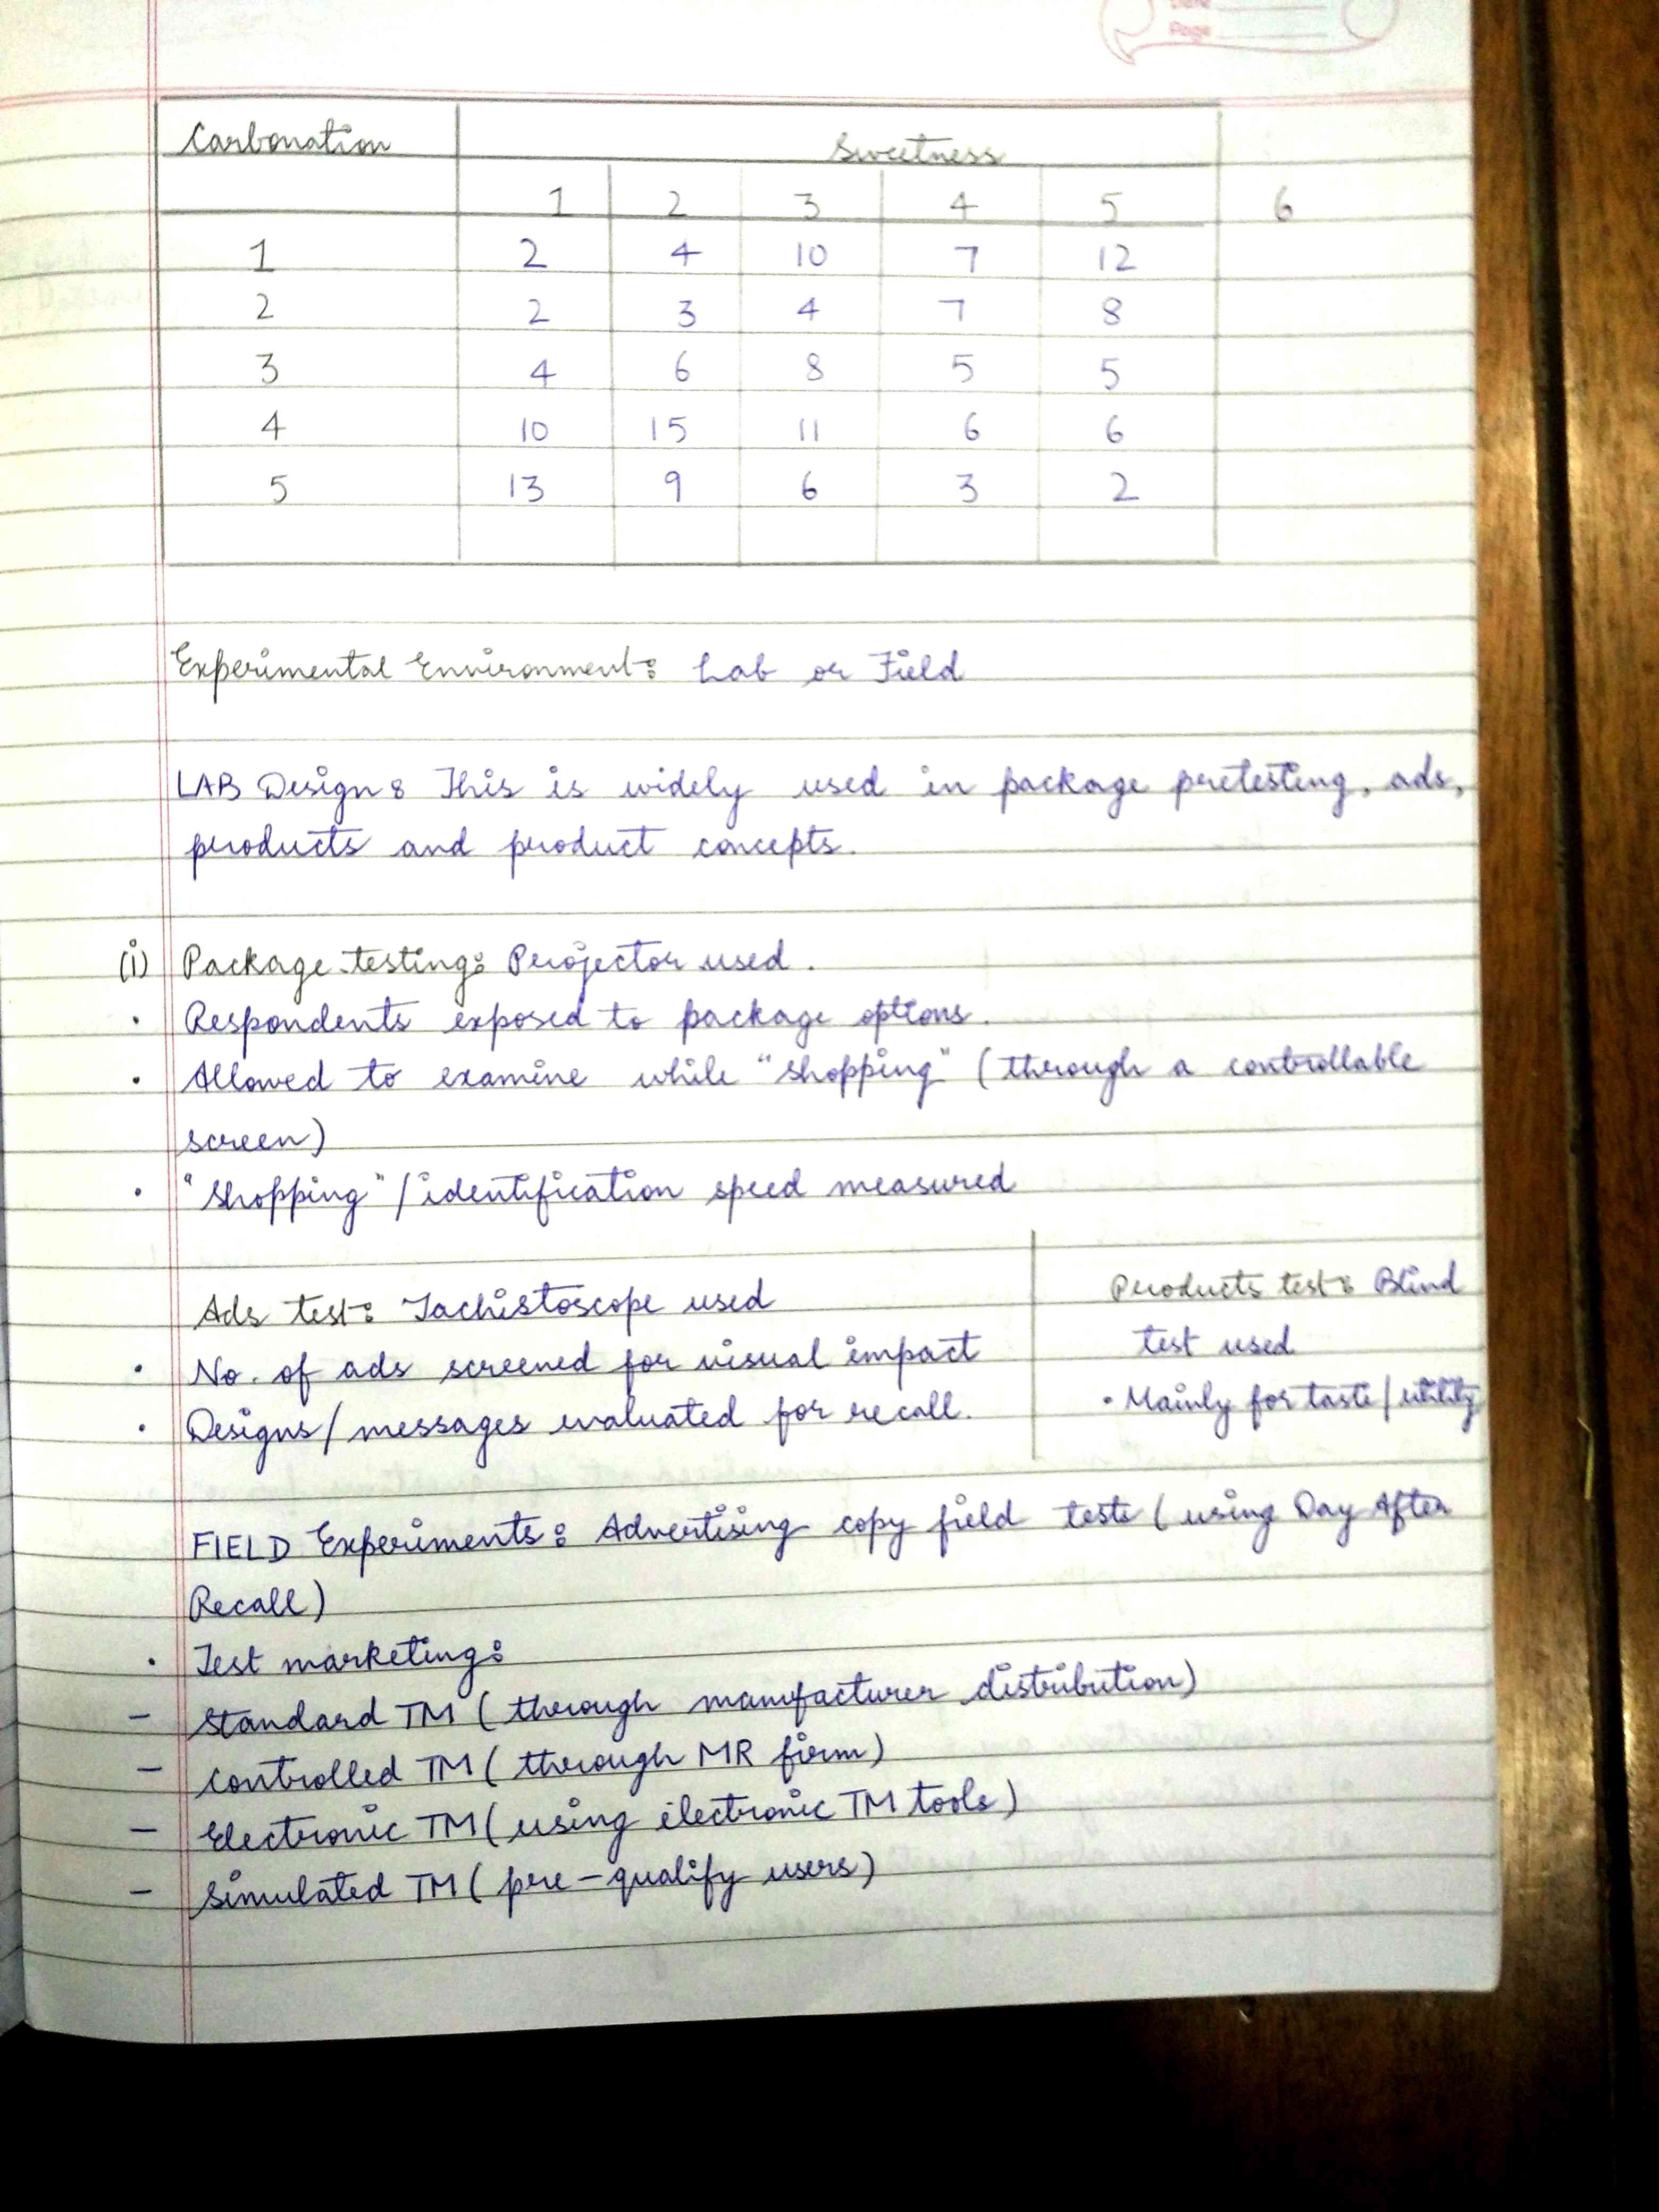 Page
Carbonation Sweetness
1 2 3 4 5 6
1 2 4 10 7 12
2 2 3 4 7 8
3 4 6 8 5 5
4 10 15 11 6 6
5 13 9 6 3 2
Experimental Environment: Lab or Field
LAB Design: This is widely used in package pretesting, ads,
products and product concepts.
(i) Package testing: Projector used.
• Respondents exposed to package options.
• Allowed to examine while "shopping" (through a controllable
screen)
• "Shopping"/identification speed measured
Ads test: Tachistoscope used
• No. of ads screened for visual impact
• Designs/messages evaluated for recall.
Products test: Blind
test used
• Mainly for taste/utility
FIELD Experiments: Advertising copy field tests (using Day After
Recall)
• Test marketing:
– Standard TM (through manufacturer distribution)
– Controlled TM (through MR firm)
– Electronic TM (using electronic TM tools)
– Simulated TM (pre-qualify users)